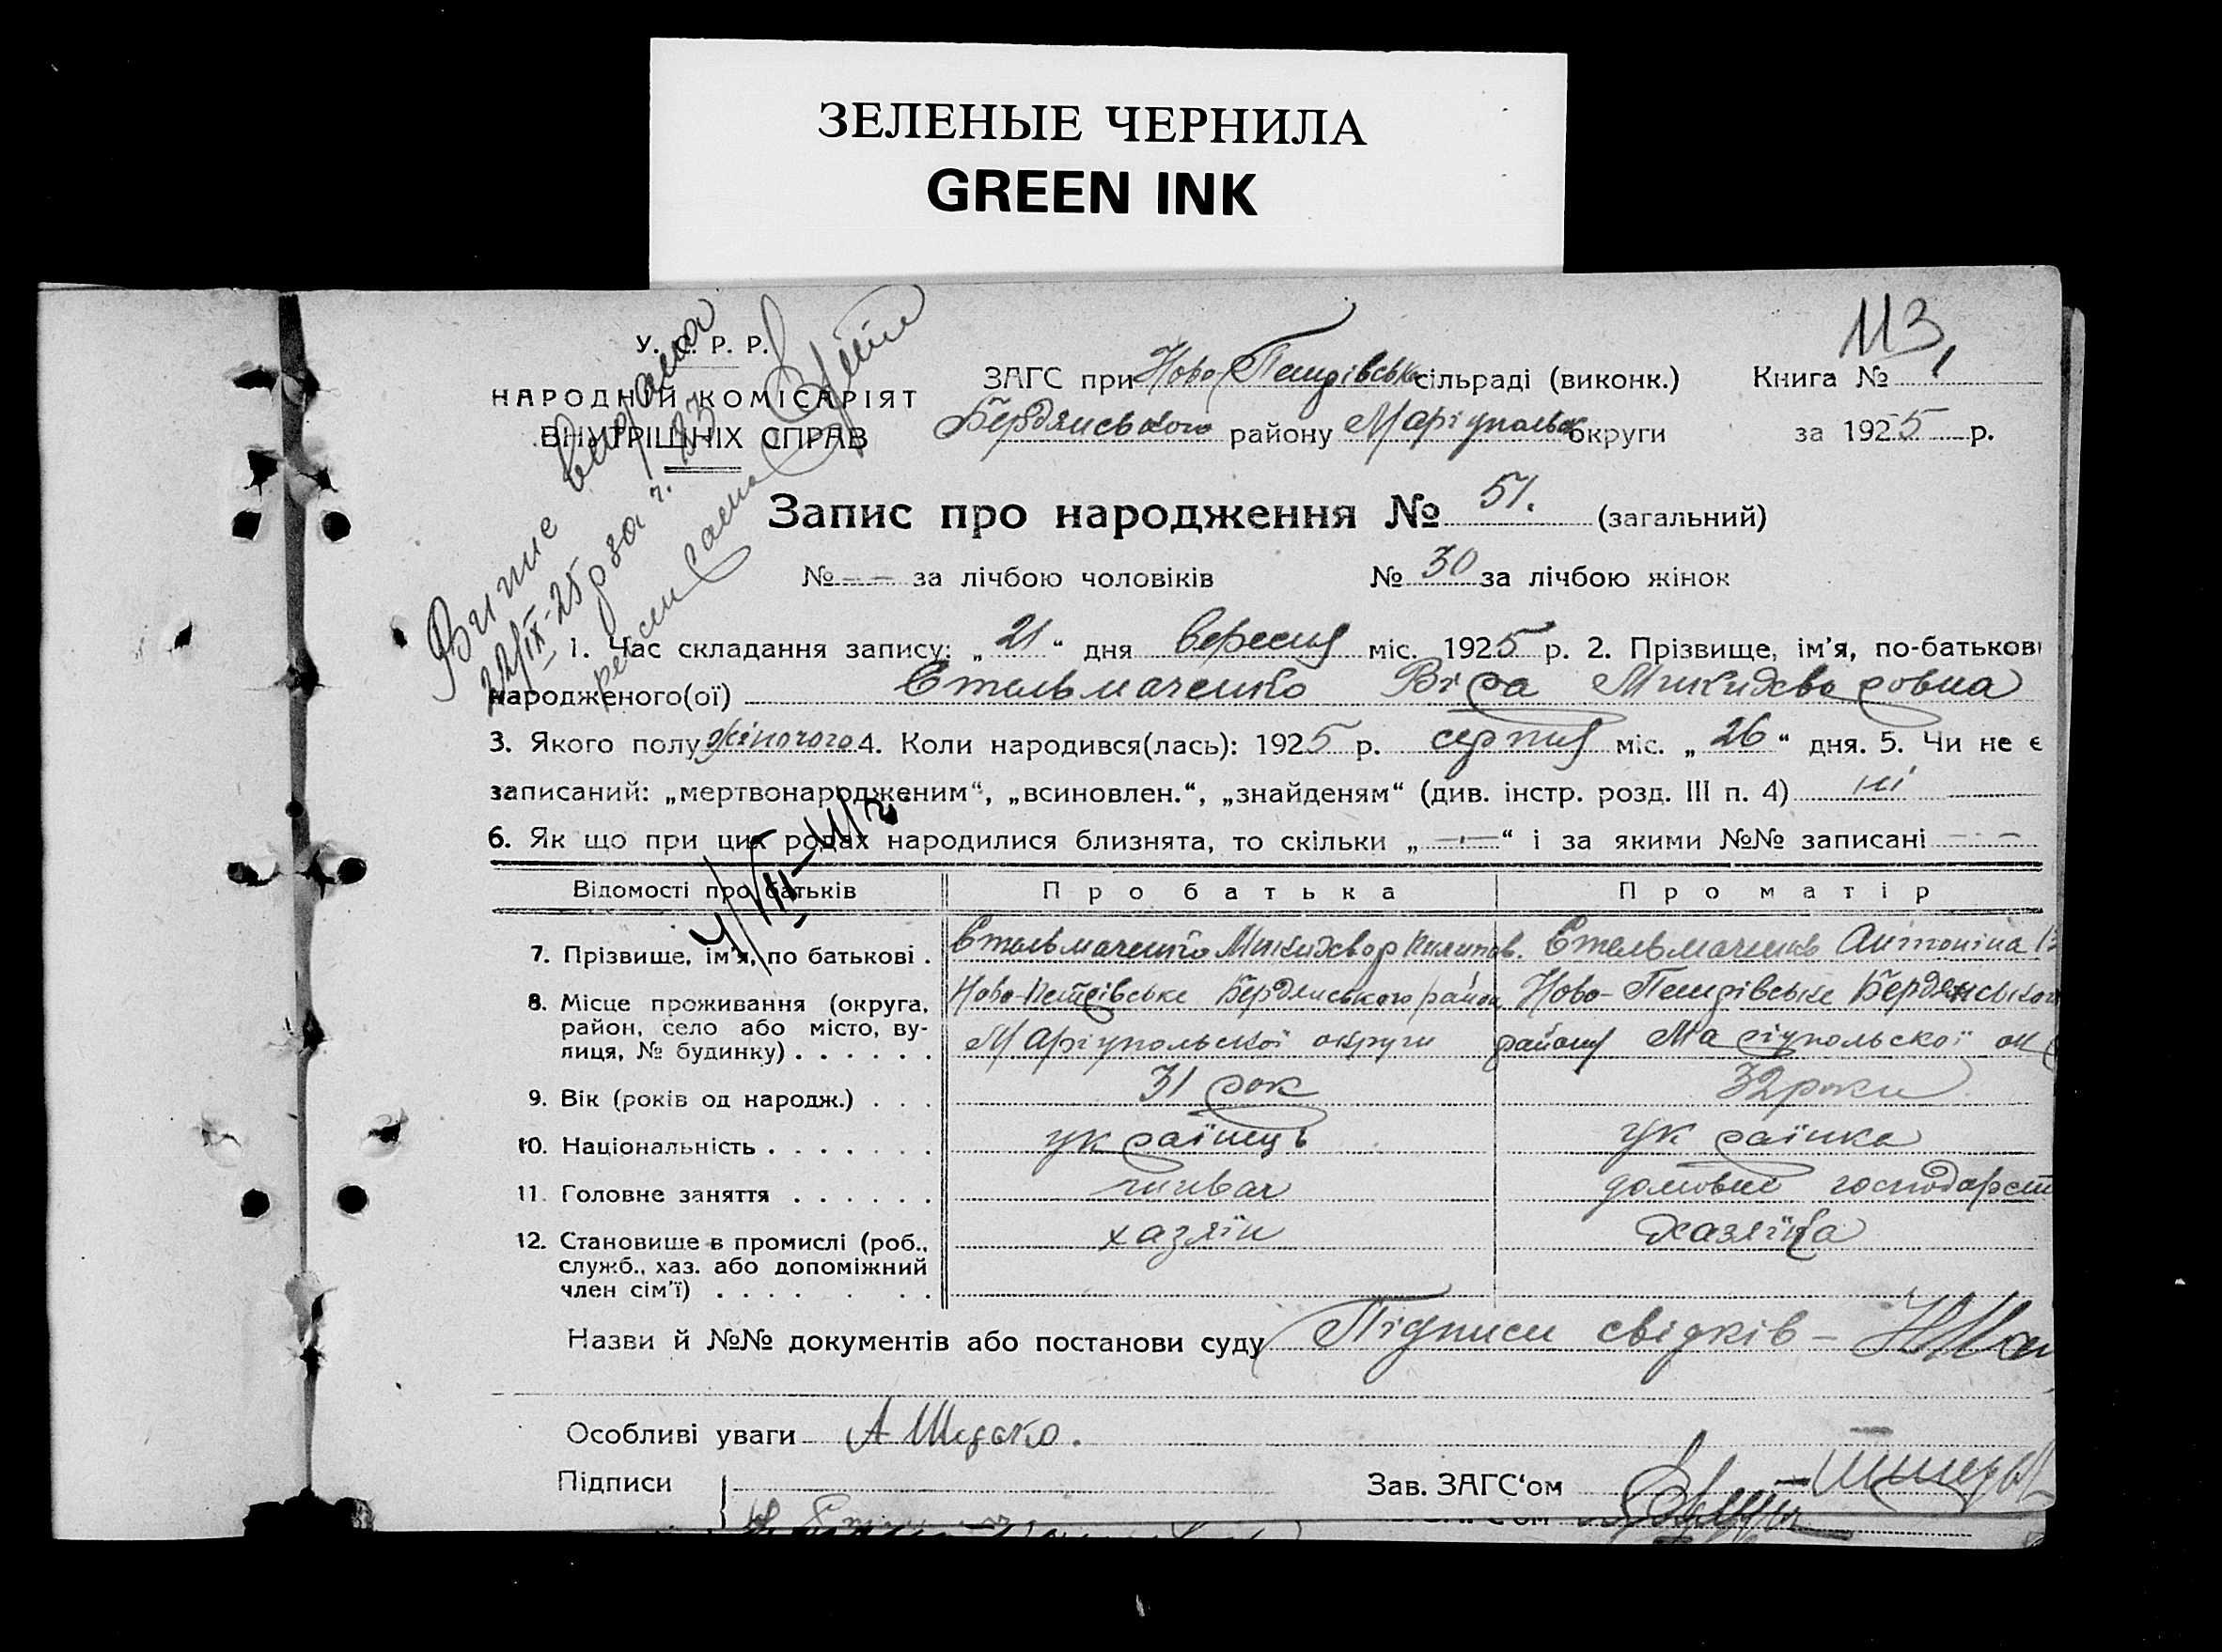 ЗЕЛЕНЫЕ ЧЕРНИЛА
GREEN INK
113
У. С. Р. Р.
НАРОДНІЙ КОМІСАРІЯТ
ВНУТРІШНІХ СПРАВ
ЗАГС при Ново Петрівськ сільраді (виконк.) Книга № 1
Бердянського району Маріупольск округи за 1925 р.
Запис про народження № 51. (загальний)
№ - - за лічбою чоловіків № 30 за лічбою жінок
Випис видана
22/IX-25р за ч. 83
1. Час складання запису: „ 21 “ дня вересня міс. 1925 р. 2. Прізвище, ім’я, по-батькові
народженого(ої) Стельмаченко Віра Микихворовна
3. Якого полу жіночого 4. Коли народився(лась): 1925 р. серпня міс. „ 26 “ дня. 5. Чи не є
записаний: „мертвонародженим“, „всиновлен.“, „знайденям“ (див. інстр. розд. III п. 4) ні
6. Як що при цих родах народилися близнята, то скільки „ — “ і за якими №№ записані - -
Відомості про батьків Про батька Про матір
7. Прізвище, ім’я, по батькові . Стельмаченко Микихвор Пилипов. Стельмаченко Антоніна
8. Місце проживання (округа, район, село або місто, вулиця, № будинку) . . . . . . Ново-Петрівське Бердянського район Ново-Петрівське Бердянського
Маріупольської округи району Маріупольскої ок
9. Вік (років од народж.) . . . 31 рок 32 роки
10. Національність . . . . . . . українець українка
11. Головне заняття . . . . . . домовне господарст
12. Становище в промислі (роб., хазяїн хазяїка
служб., хаз. або допоміжний
член сім’ї) . . . . . . .
Назви й №№ документів або постанови суду Підписи свідків –
Особливі уваги А
Підписи Зав. ЗАГС‘ом